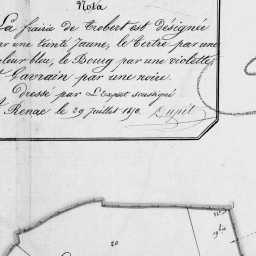 Nota
La frairie de Trobert est désignée
par une teinte Jaune, le Tertre par une
couleur bleu, le Bourg par une violette,
St Gavrain par une noire.
Dressé par L'Expert soussigné
St Renac le 29 Juillet 1850
20